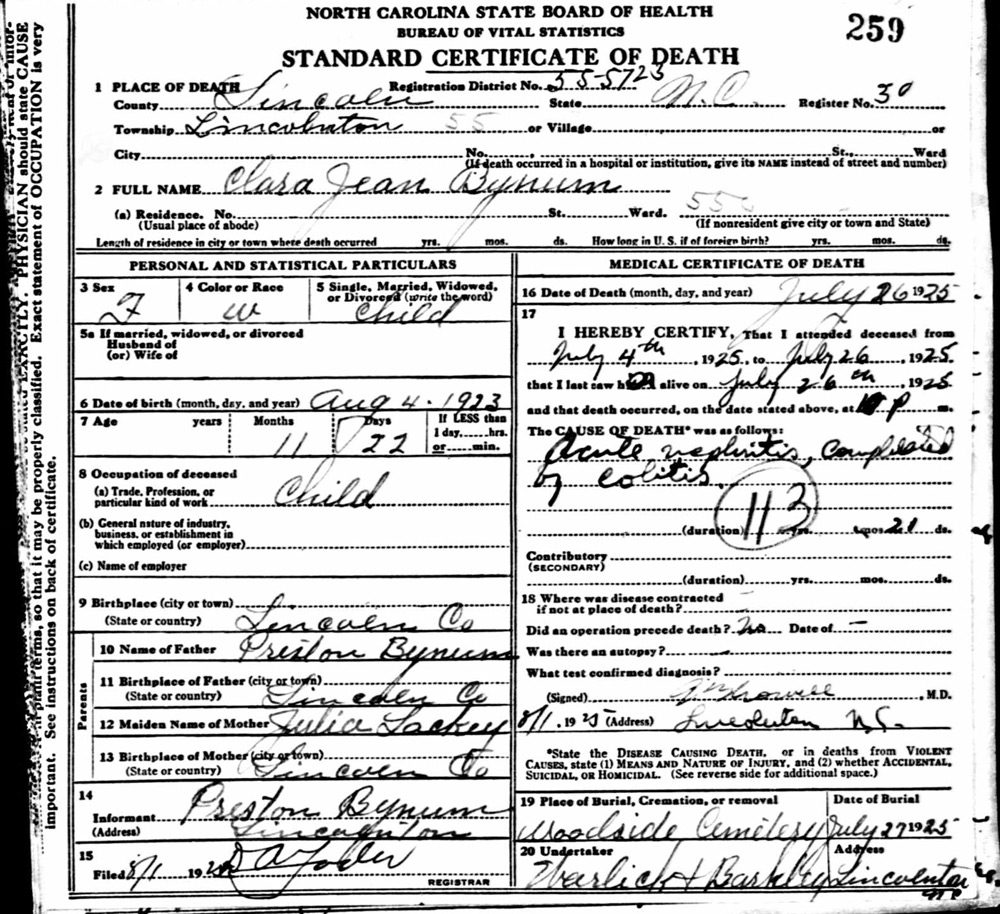 NORTH CAROLINA STATE BOARD OF HEALTH
BUREAU OF VITAL STATISTICS
259
STANDARD CERTIFICATE OF DEATH
1 PLACE OF DEATH Registration District No. 55-5723
County Lincoln State N.C. Register No. 30
Township Lincolnton 55 or Village or
City No. St., Ward
(If death occurred in a hospital or institution, give its NAME instead of street and number)
2 FULL NAME Clara Jean Bynum
(a) Residence. No. St. Ward. 55
(Usual place of abode) (If nonresident give city or town and State)
Length of residence in city or town where death occurred yrs. mos. ds. How long in U. S. if of foreign birth? yrs. mos. ds.
PERSONAL AND STATISTICAL PARTICULARS
3 Sex 4 Color or Race 5 Single, Married, Widowed, or Divorced (write the word)
F W Child
5a If married, widowed, or divorced
Husband of
(or) Wife of
6 Date of birth (month, day, and year) Aug 4 - 1923
7 Age years Months Days If LESS than
1 day hrs.
11 22 or min.
8 Occupation of deceased
(a) Trade, Profession, or
particular kind of work Child
(b) General nature of industry,
business, or establishment in
which employed (or employer)
(c) Name of employer
9 Birthplace (city or town)
(State or country) Lincoln Co
Parents
10 Name of Father Preston Bynum
11 Birthplace of Father (city or town)
(State or country) Lincoln Co
12 Maiden Name of Mother Julia Lackey
13 Birthplace of Mother (city or town)
(State or country) Lincoln Co
14
Informant Preston Bynum
(Address) Lincolnton
15
Filed 8/1 192 D A Yoder
REGISTRAR
MEDICAL CERTIFICATE OF DEATH
16 Date of Death (month, day, and year) July 26 1925
17
I HEREBY CERTIFY, That I attended deceased from
July 4th, 1925, to July 26, 1925
that I last saw h alive on July 26th, 1925
and that death occurred, on the date stated above, at 10 P m.
The CAUSE OF DEATH* was as follows:
Acute nephritis, complicated
by colitis.
113
(duration) yrs. mos. 21 ds.
Contributory
(SECONDARY)
(duration) yrs. mos. ds.
18 Where was disease contracted
if not at place of death?
Did an operation precede death? No Date of -
Was there an autopsy? -
What test confirmed diagnosis?
(Signed) Crowell, M.D.
8/1, 1925 (Address) Lincolnton N.C.
*State the DISEASE CAUSING DEATH, or in deaths from VIOLENT
CAUSES, state (1) MEANS AND NATURE OF INJURY, and (2) whether ACCIDENTAL,
SUICIDAL, OR HOMICIDAL. (See reverse side for additional space.)
19 Place of Burial, Cremation, or removal Date of Burial
Woodside Cemetery July 27 1925
20 Undertaker Address
Warlick & Barkley Lincolnton
N C
EXACTLY. PHYSICIAN should state CAUSE
in plain terms, so that it may be properly classified. Exact statement of OCCUPATION is very
important. See instructions on back of certificate.